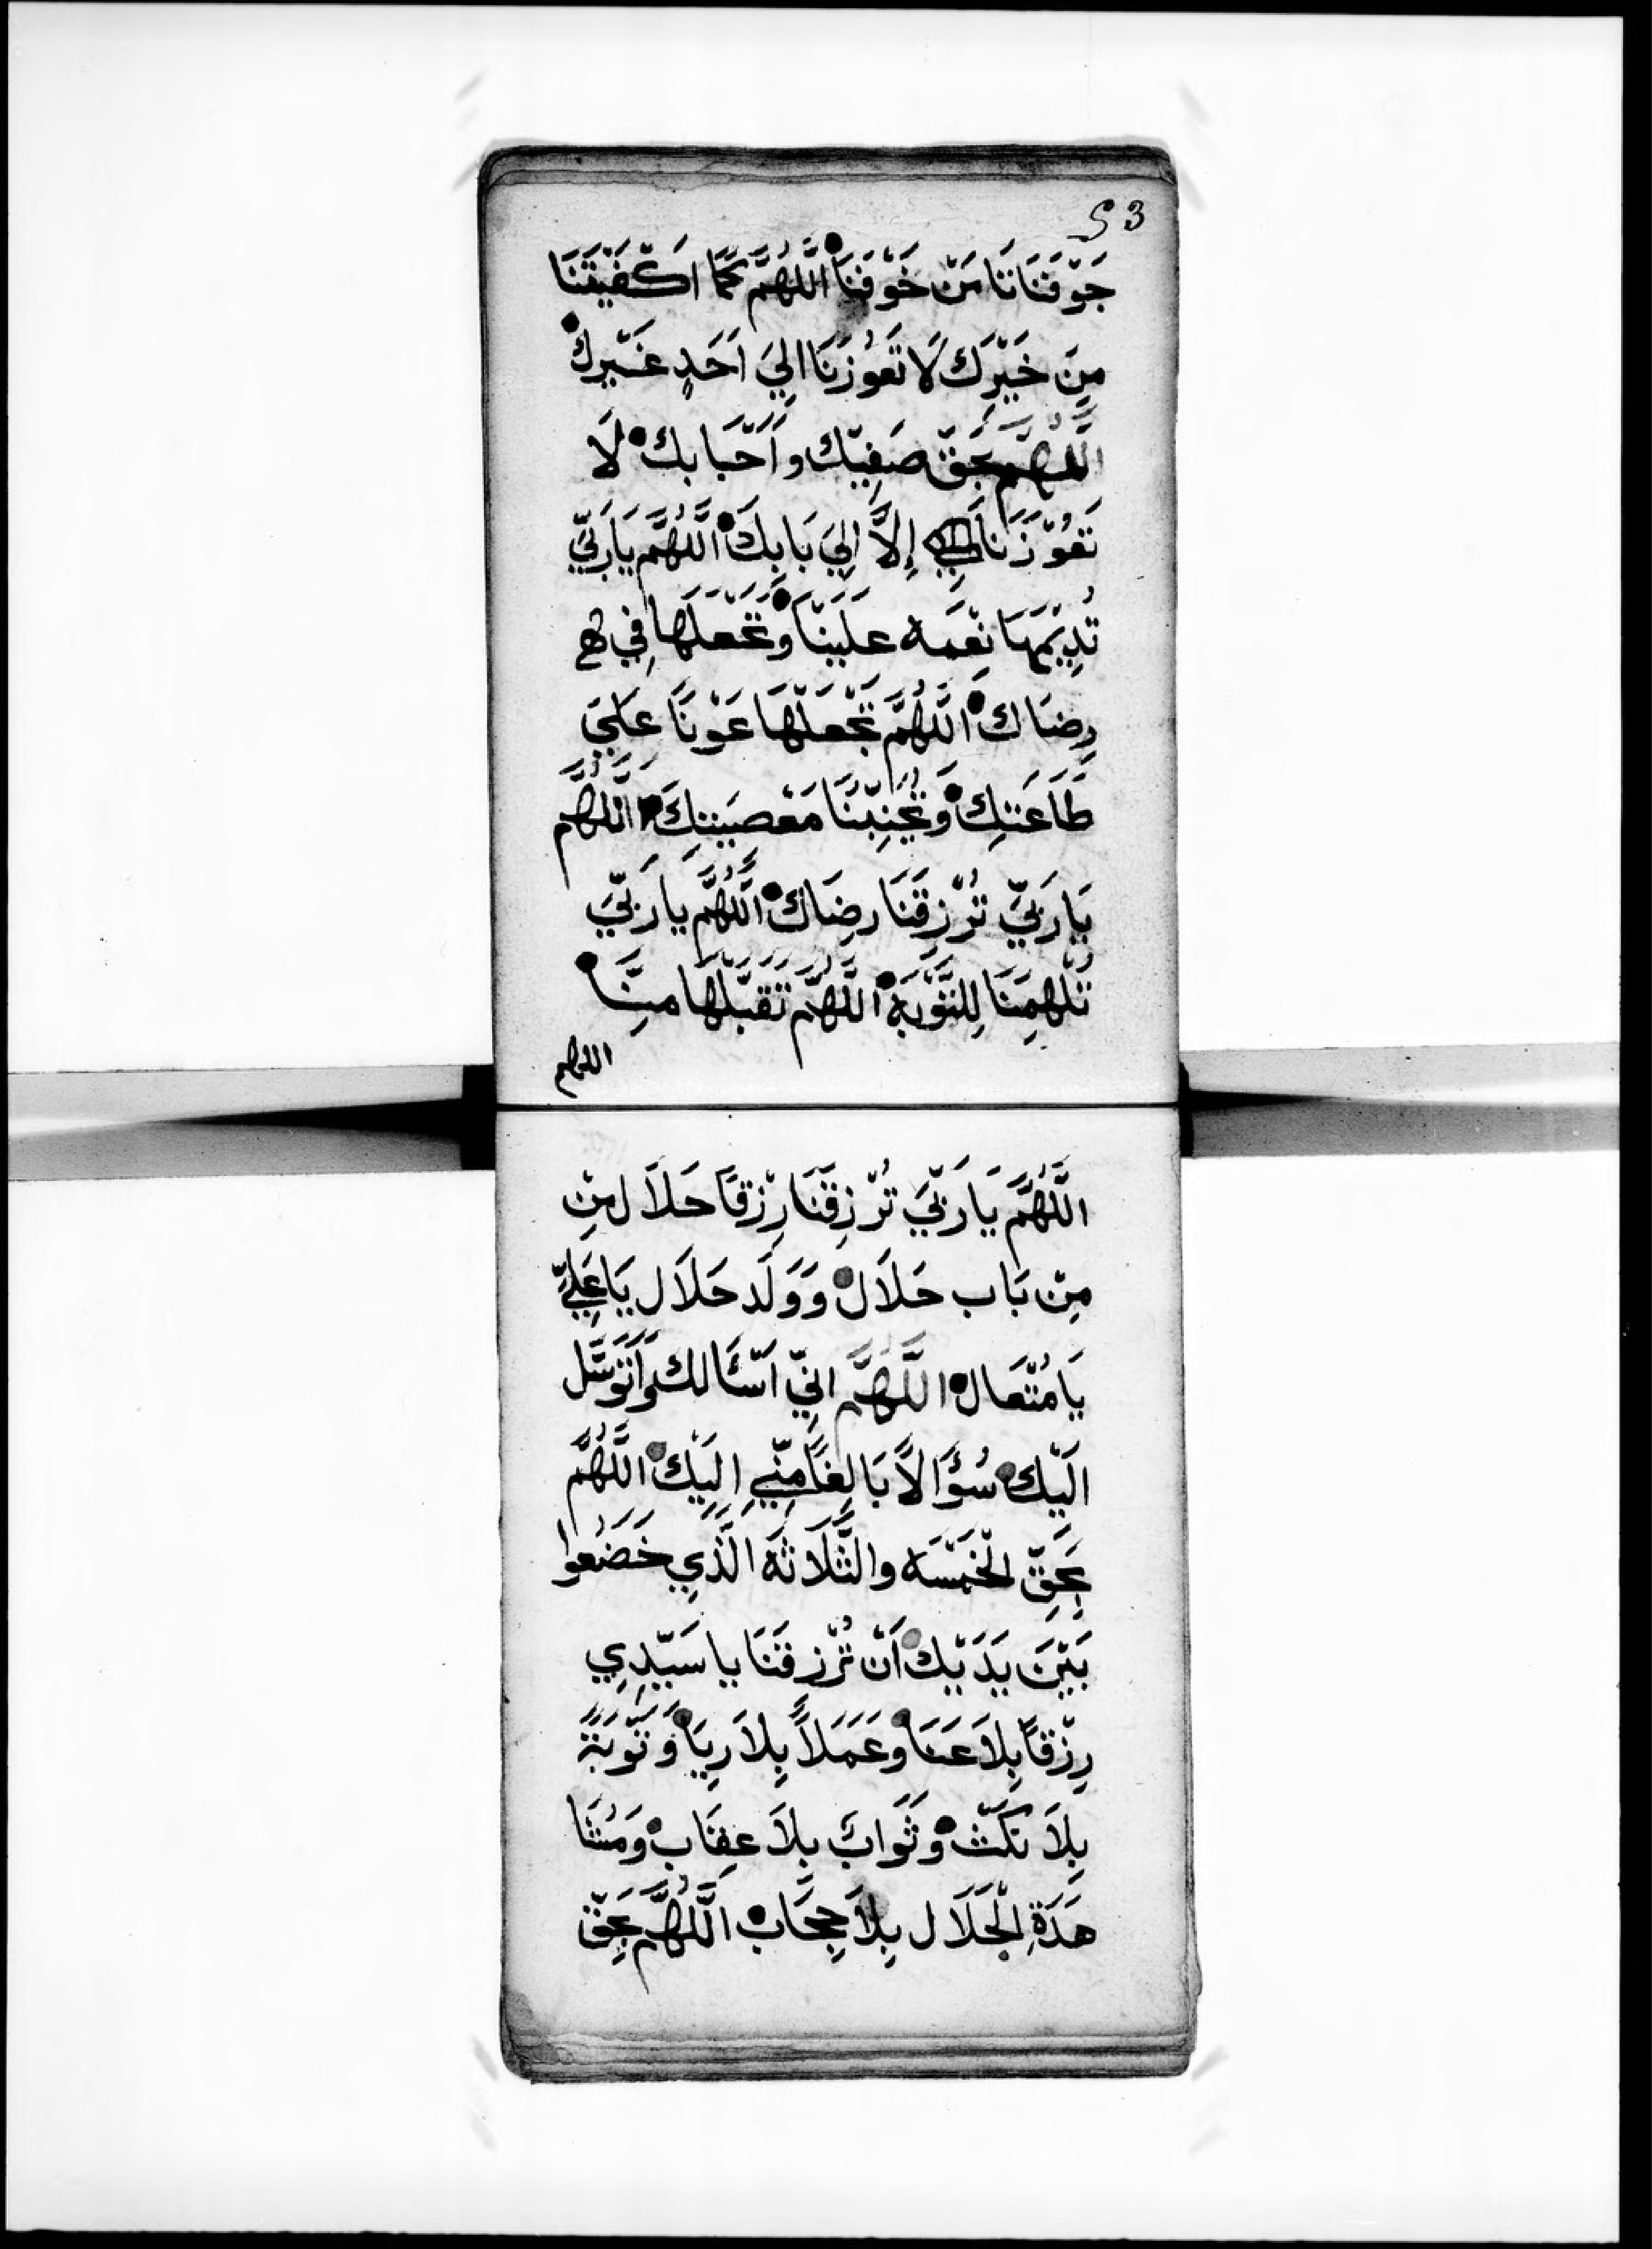 53
جَوْفَنَا نَا مَنْ خَوْفَنَا اللَّهُمَّ كَمَا اَكْفَيْتَنَا
مِنَ خَيْرَك لَا تَعُوْزَنَا اِلِيَ اَحَدٍ غَيْرك
اللَّهُمَّ بَحَقّ صَفِيّك وَاَحّبَابك لَا
تَعُوْزَنَا اِلَّا اِلِيَ بَابِكَ اللَّهُمَّ يَا رَبّيَ
تُدِيْمهَا نِعْمَه عَلَيْنَا وَتَجْعَلهَا فِي
رِضَاك اللَّهُمَّ تَجْعَلْهَا عَوْنًا عَلَيَ
طَاعَتِك وَتُجَنِبّنَا مَعْصِيَتِكَ اللَّهُمَّ
يَا رَبّيَ تُرْزِقَنَا رِضَاك اللَّهُمَّ يَا رَبّيَ
تُلْهِمَنَا لِلتَّوْبَةِ اللَّهُمَّ تَقَبَّلْهَا مِنَّا
اللهم
اللَّهُمَّ يَا رَبّيَ تُرْزِقَنَا رِزْقًا حَلَال مِنِ
مِنْ بَاب حَلَال وَوَلَد حَلَال يَا عَلِيّ
يَا مُتْعَال اللَّهُمَّ اِنِّي اَسْئَالك وَاَتَوَسَّل
اِلَيْك سُؤَالًا بَالِغًا مِنّيِ اِلَيْك اللَّهُمَّ
بِحَقِّ الْخَمْسَه والثَّلَاثَه الَّذِي خَضَعُوا
بَيْنَ يَدَيْك اَنْ تُرْزقَنَا يا سَيّدِي
رِزْقًا بِلَا عَنَا وعَمَلًا بِلَا رِيَا وَتَوْبَةً
بِلَا نَكْث وَثَوَاب بِلَا عِقَاب وَمُشَا
هَدَةِ الْجَلَال بِلَا حِجَاب اللَّهُمَّ بحَقّ